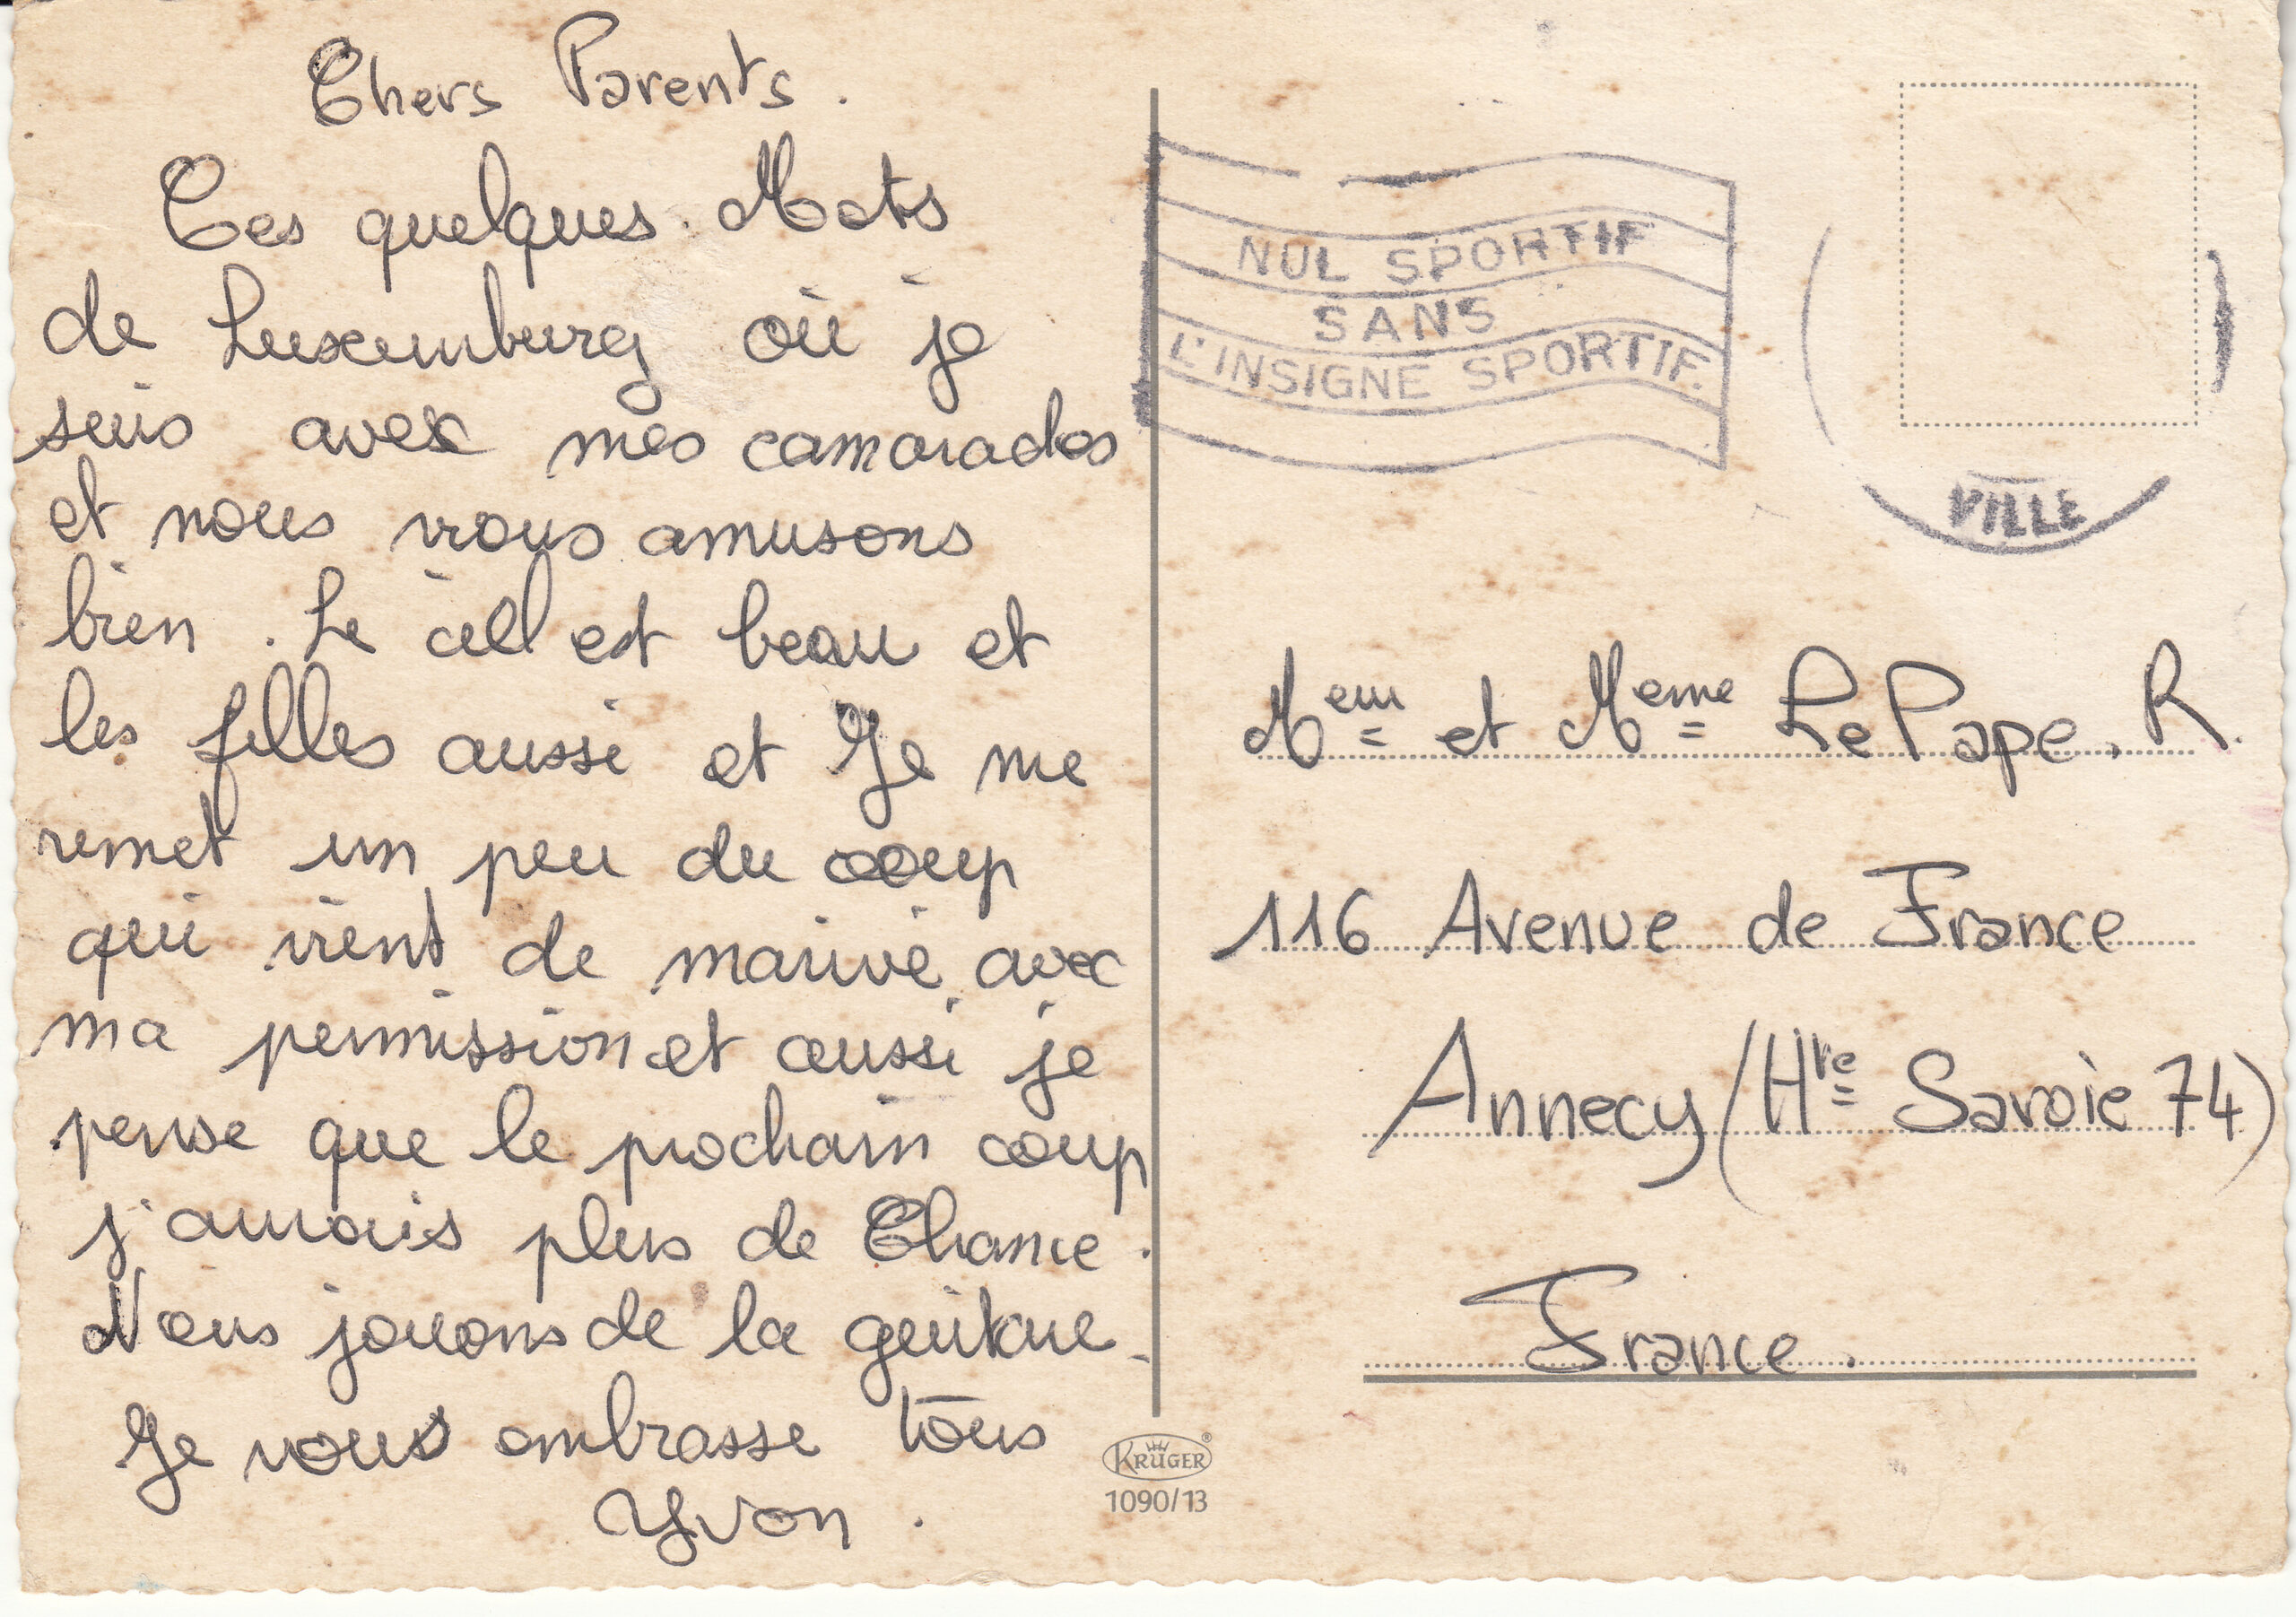 Chers Parents.
Ces quelques Mots
de Luxemburg où je
suis avec mes camarades
et nous nous amusons
bien. Le ciel est beau et
les filles aussi et Je me
remet un peu du coup
qui vient de
avec
ma permission et aussi je
pense que le prochain coup
j'aurais plus de Chance.
Nous jouons de la guitare.
Je vous embrasse tous
Yvon.
NUL SPORTIF
SANS
L'INSIGNE SPORTIF.
VILLE
Meur et Meme Le Pape. R.
116 Avenue de France
Annecy (Hte Savoie 74)
France.
KRÜGER®
1090/13